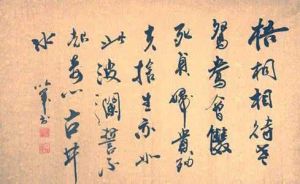 梧桐相待老
鴛鴦會雙
死貞婦貴殉
夫捨生亦如
此波瀾誓不
起妾心古井
水